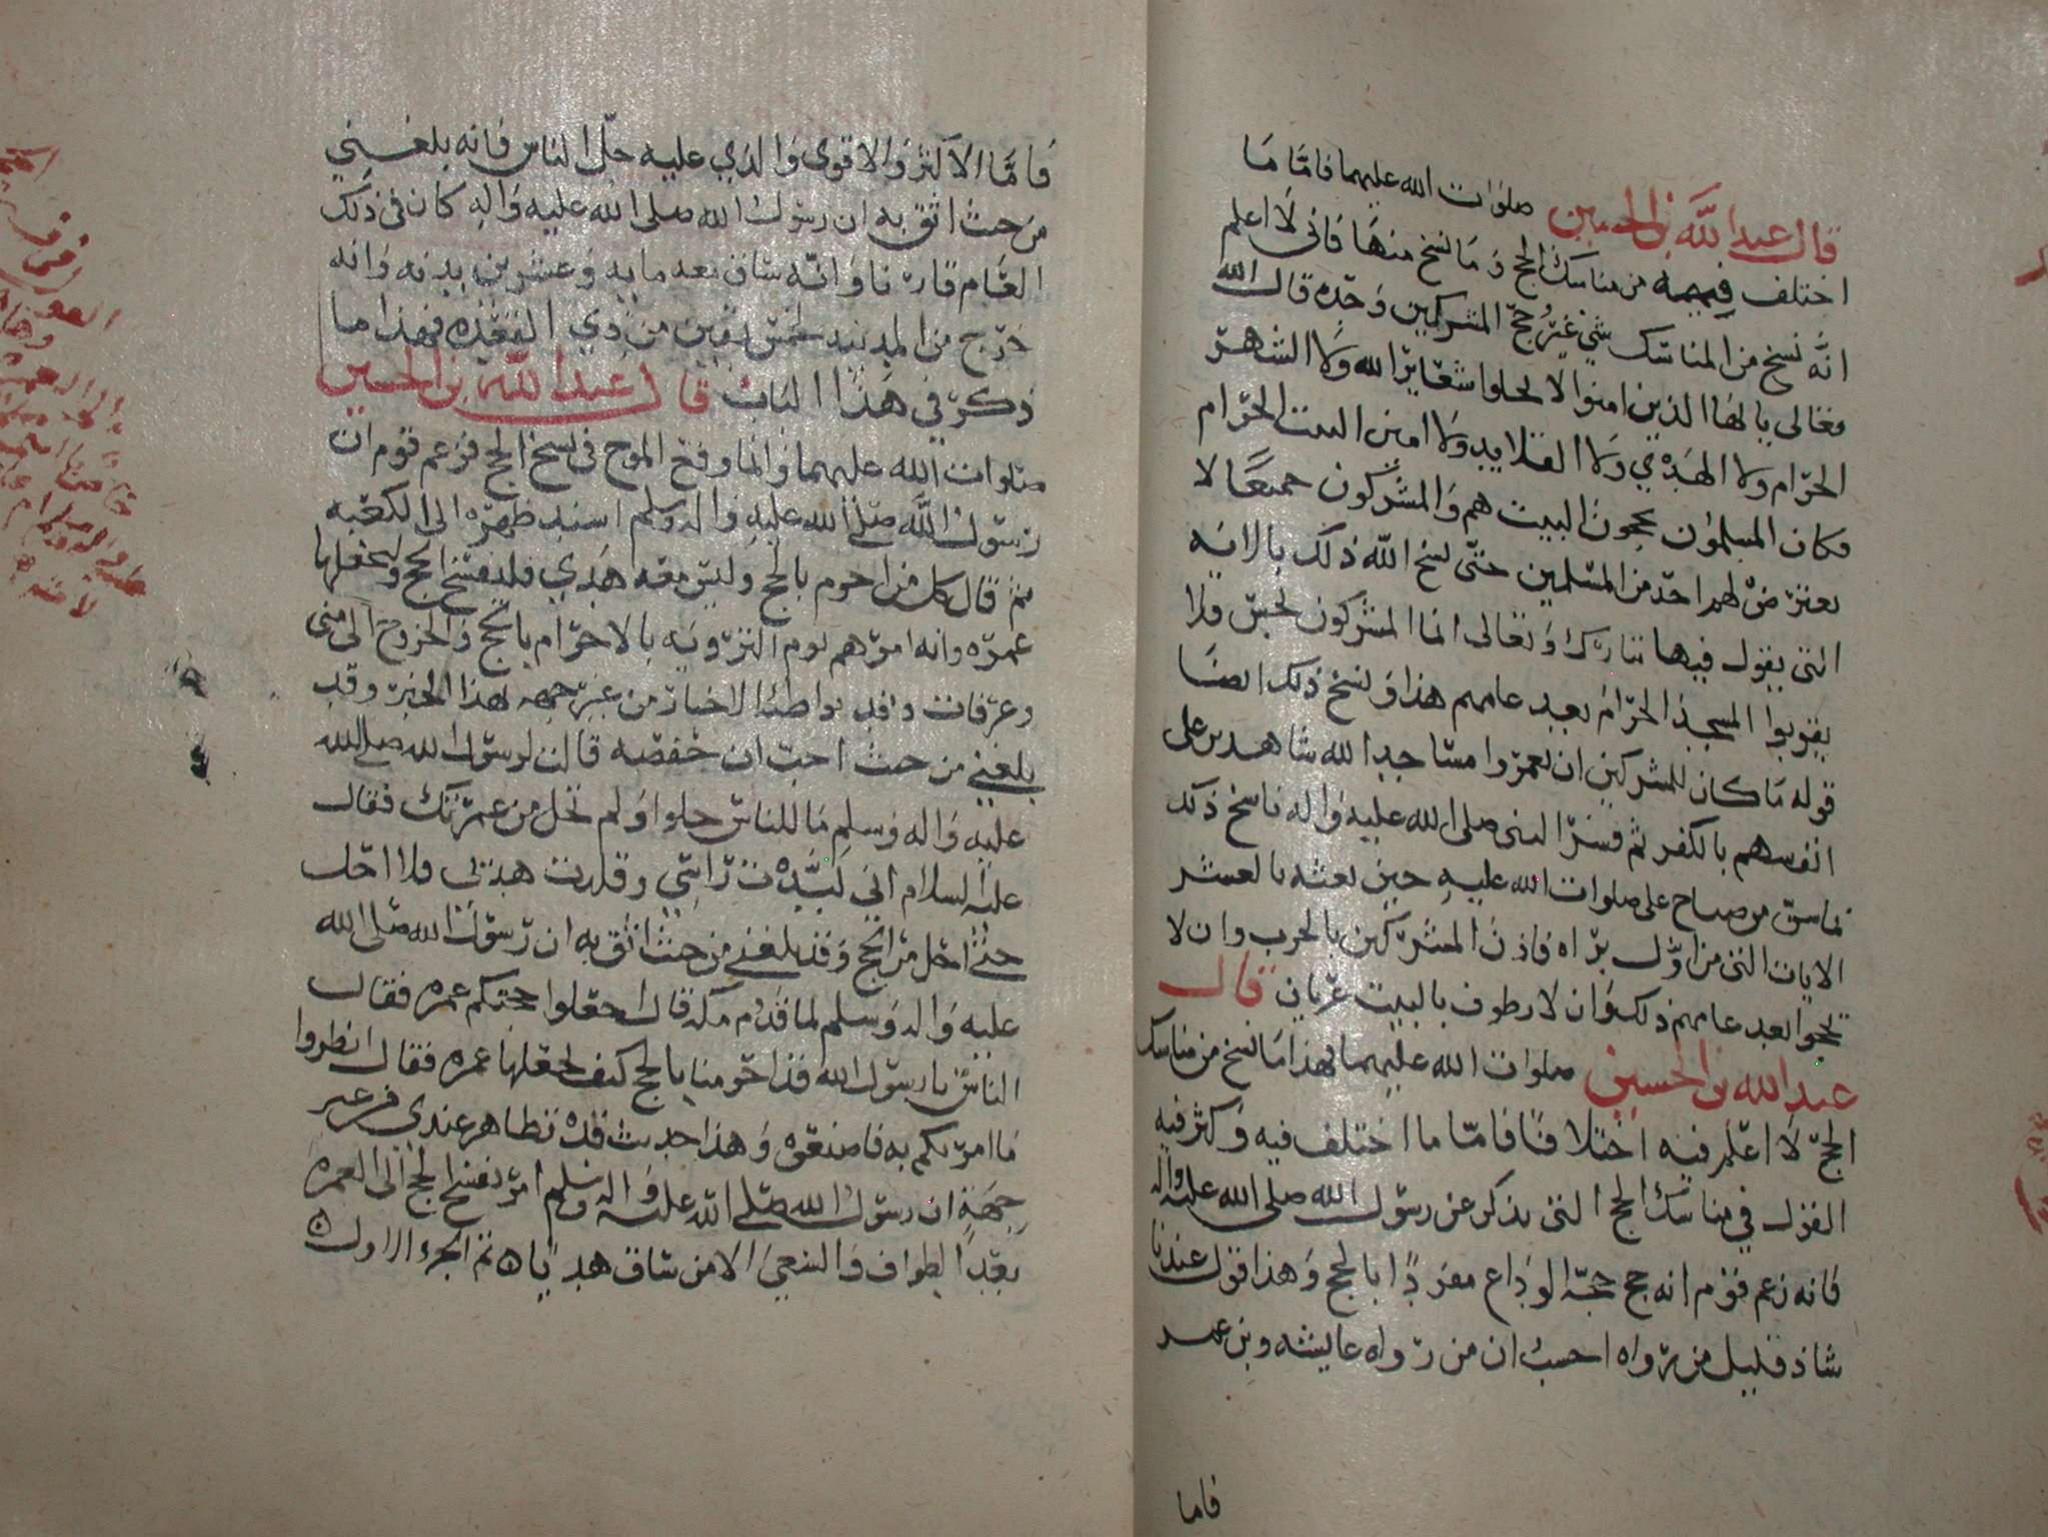 قال عبد الله بن الحسين صلوات الله عليهما فاما ما
اختلف فيه من مناسك الحج وما نسخ منها فاني لا اعلم
انه نسخ من المناسك شي غير حج المشركين وحده قال الله
تعالى يا ايها الذين امنوا لا تحلوا شعاير الله ولا الشهر
الحرام ولا الهدي ولا القلايد ولا امين البيت الحرام
فكان المسلمون يحجون البيت هم والمشركون جميعا لا
يعترض لهم احد من المسلمين حتى نسخ الله ذلك بالايه
التي يقول فيها تبارك وتعالى انما المشركون نجس فلا
يقربوا المسجد الحرام بعد عامهم هذا ونسخ ذلك ايضا
قوله ما كان للمشركين ان يعمروا مساجد الله شاهدين على
انفسهم بالكفر ثم فسر النبي صلى الله عليه واله ناسخ ذلك
على صلوات الله عليه حين بعثه بالعشر
الايات التي من اول براه فاذن المشركين بالحرب وان لا
يحجوا بعد عامهم ذلك وان لا يطوف بالبيت عريان قال
عبد الله بن الحسين صلوات الله عليهما فهذا ما نسخ من مناسك
الحج لا اعلم فيه اختلافا فاما ما اختلف فيه وكثر فيه
القول في مناسك الحج التي يذكر عن رسول الله صلى الله عليه واله
فانه زعم قوم انه حج حجة الوداع مفردا بالحج وهذا قول عندنا
شاذ قليل من رواه احسب ان من رواه عايشه وبن عمر
فاما
فاما الاكثر والاقوى والذي عليه جل الناس فانه بلغني
من حيث اثق به ان رسول الله صلى الله عليه واله كان في ذلك
العام قارنا وانه ساق معه مايه وعشرين بدنه وانه
خرج من المدينه لخمس بقين من ذي القعده فهذا ما
ذكر في هذا الباب قال عبد الله بن الحسين
صلوات الله عليهما وانما وقع الموج في نسخ الحج فزعم قوم ان
رسول الله صلى الله عليه واله وسلم اسند ظهره الى الكعبه
ثم قال كل من احرم بالحج وليس معه هدي فليفسخ الحج وليجعلها
عمره وانه امرهم يوم الترويه بالاحرام بالحج والخروج الى منى
وعرفات وقد تواطت الاخبار من غير جهه بهذا الخبر وقد
بلغني من حيث احب ان حفصه قالت لرسول الله صلى الله
عليه واله وسلم ما للناس حلوا ولم تحل من عمرتك فقال
عليه السلام اني لبدت راسي وقلدت هديي فلا احل
حتى احل من الحج وقد بلغني من حيث اثق به ان رسول الله صلى الله
عليه واله وسلم لما قدم مكه قال اجعلوا حجتكم عمره فقال
الناس يا رسول الله قد احرمنا بالحج كيف نجعلها عمره فقال انظروا
ما امرتكم به فاصنعوه وهذا حديث قد تظاهر عندي من غير
جهة ان رسول الله صلى الله عليه واله وسلم امر بفسخ الحج الى العمره
بعد الطواف والسعي الا من ساق هديا تم الجزء الاول